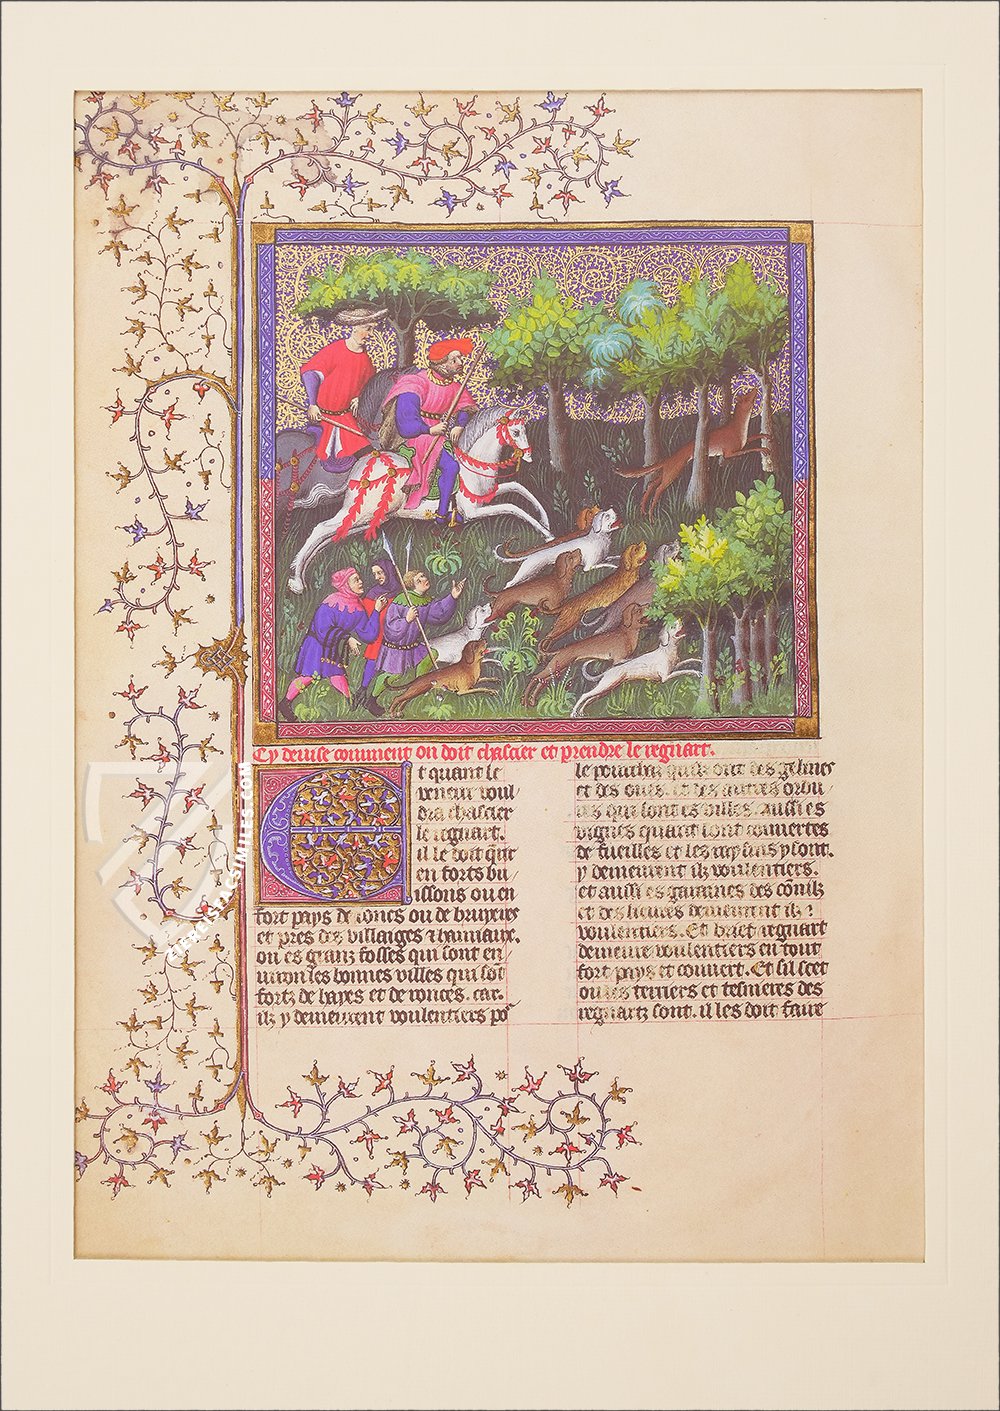 Cy devise comment on doit chascier et prendre le regnart.
Et quant le
veneur voul
dra chascier
le regnart.
il le doit q̄rir
en forts bu
issons ou en
fort pays de ronces ou de bruyeres
et pres des villaiges & hamiaux.
ou es granz fosses qui sont en
uiron les bonnes villes qui sōt
fortz de hayes et de ronces. car.
ilz y demeurent voulentiers po᷑
le pourchas quilz ont des gelines
et des oues. et des autres ordu
res qui sont es villes. Aussi es
vignes quant sont couuertes
de fueilles et les raysins y sont.
y demeurent ilz voulentiers.
et aussi es garannes des cōnilz
et des lieures demeurent ilz
voulentiers. Et brief regnart
demeure voulentiers en tout
fort pays et couuert. Et sil scet
ou les terriers et tesnieres des
regnartz sont. il les doit faire
ZIEREIS FACSIMILES.COM